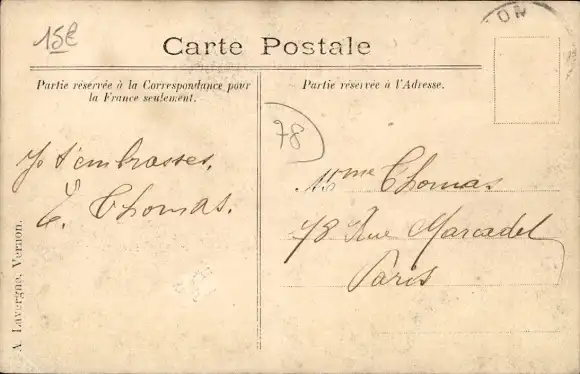 15€
ON
Carte Postale
Partie réservée à la Correspondance pour
la France seulement.
Partie réservée à l'Adresse.
78
Je t'embrasses.
E. Thomas.
Mme Thomas
73 Rue Marcadet
Paris
A. Lavergne, Vernon.